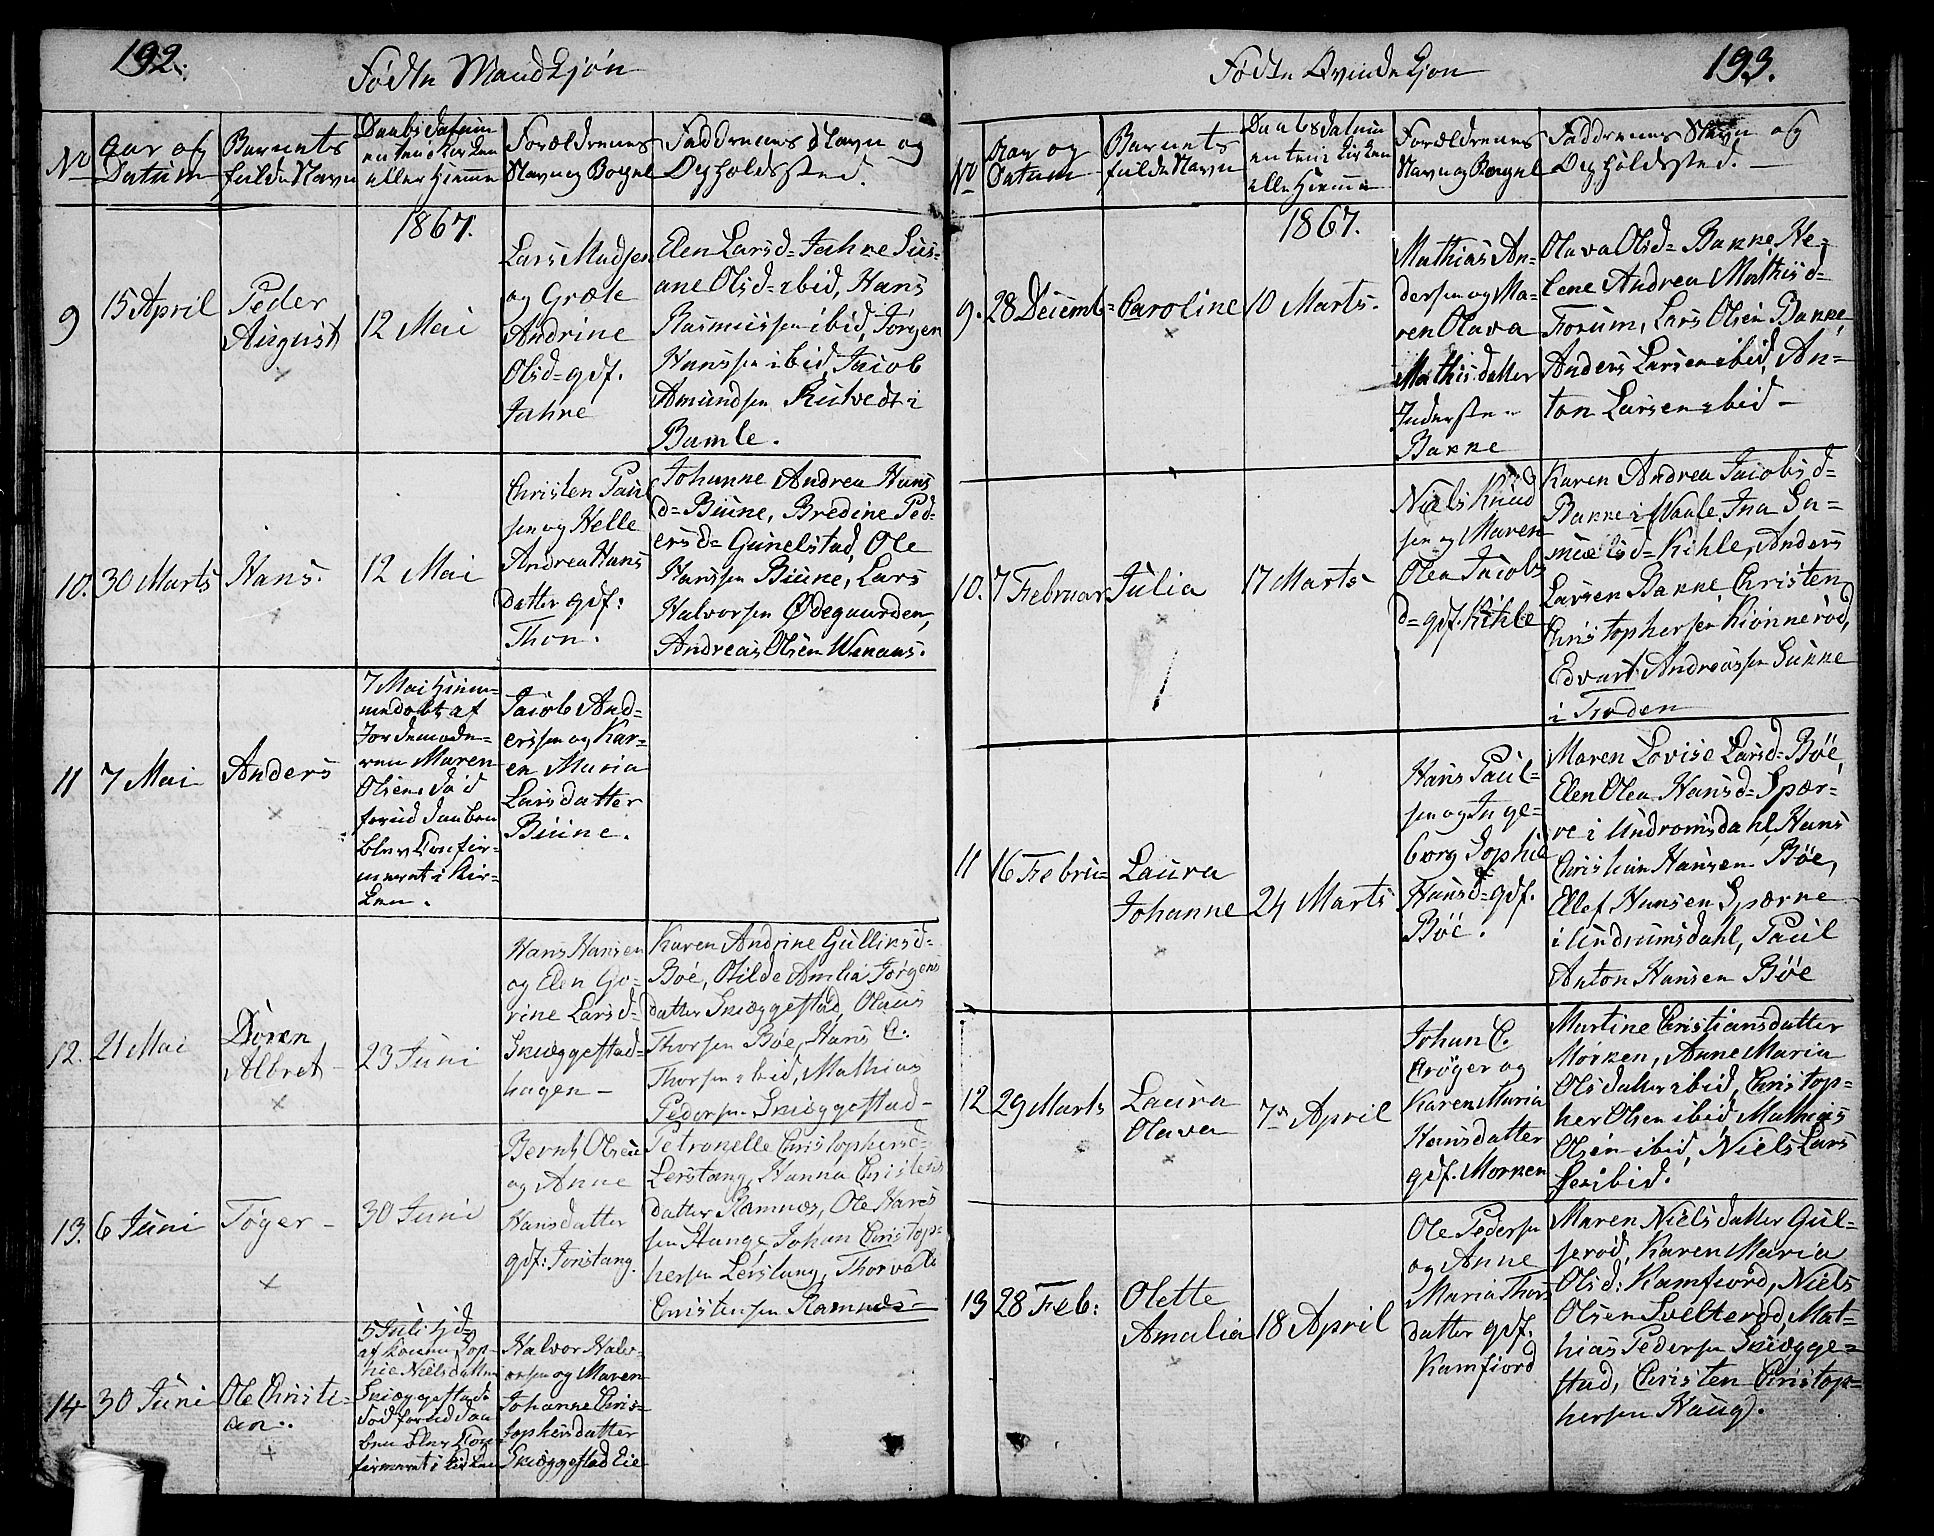 192.
Fødte Mandkjøn
No
Aar og
Datum
Barnets
fulde Navn
Daabs Datum
enten i Kirken
eller Hiemme
Forældrenes
Navn og Borgel
Faddrenes Navn og
Opholdssted.
1867.
9
15 April
Peder
August
12 Mai
Lars Madsen
og Græte
Andrine
Olsd= gdf.
Jahre
Elen Larsd= Jahre Sus-
ane Olsd= ibid, Hans
Rasmussen ibid, Jørgen
Hanssen ibid, Jacob
Amundsen Rutvedt i
Bamle.
10.
30 Marts
Hans.
12 Mai
Christen Paul
sen og Helle
Andrea Hans
datter gdf:
Thon.
Johanne Andrea Hans
d= Biune, Bredine Ped-
ersd= Gunelstad, Ole
Hanssen Biune, Lars
Halvorsen Ødegaarden,
Andreas Olsen
11
7 Mai
Anders
7 Mai Hiem-
medøbt af
Jordemode-
ren Maren
Olsen, død
forud Daaben
blev Confir-
meret i Kir-
ken.
Jacob And-
erssen og Kar-
en Maria
Larsdatter
Biune.
12.
21 Mai
Søren
Albret
23 Juni
Hans Hansen
og Elen Go-
rine Larsd=
Skiæggestad-
hagen -
Karen Andrine Gulliksd=
Bøe, Otilde Amlia Jørgens
datter Skiæggestad, Olaus
Thorsen Bøe, Hans C.
Thorsen ibid, Mathias
Pedersen Skiæggestad-
13.
6 Juni
Tøger -
30 Juni
Bernt Olsen
og Anne
Hansdatter
gdf: Jonstang.
Petronelle Christophersd=
Lerstang, Hanna Christens
datter Ramnæs, Ole Hans
sen Hauge Johan Christop-
hersen Lerstang, Thorvald
Christensen Ramnæs=
14
30 Juni
Ole Christi-
an.
5 Juli Hjd=
af Konen Sop-
hie Nielsdatter
Skiæggestad
død forud Daa
ben blev Con-
firmeret i Kirken
Halvor Halv-
orsen og Maren
Johanne Chris-
tophersdatter
Skiæggestad Eie
193.
Fødte Qvindekjøn
No
Aar og
Datum
Barnets
fulde Navn
Daabsdatum
enten i Kirken
elle Hiemme
Forældrenes
Navn og Borgel
Faddrenes Navn og
Opholdssted. -
1867.
9.
28 Decemb=
Caroline
10 Marts.
Mathias An-
dersen og Ma-
ren Olava
Mathisdatter
Inderste-
Bakke
Olava Olsd= Bakke, He-
lene Andrea Mathisd=
Forum, Lars Olsen Bakke,
Anders Larsen ibid, An-
ton Larsen ibid -
10.
7 Februar
Julia
17 Marts
Niels Knud
sen og Maren
Olea Jacobs
d= gdf. Kihle
Karen Andrea Jacobsd=
Bakke i Waale, Ina Sa-
muelsd= Kihle, Anders
Larsen Bakke Christen
Christophersen Kiønnerød,
Edvart Andreassen Bakke
i Froden
11
16 Febru=
Laura
Johanne
24 Marts
Hans Paul-
sen og Inge-
borg Sophie
Hansd= gdf.
Bøe.
Maren Lovise Larsd= Bøe,
Elen Olea Hansd= Spær-
re i Undromsdahl, Hans
Christian Hansen Bøe,
Ellef Hansen Spærre
i Undrumsdahl, Paul
Anton Hansen Bøe
12
29 Marts
Laura
Olava
7de April
Johan C.
Crøger og
Karen Maria
Hansdatter
gdf. Morken
Martine Christiansdatter
Morken, Anne Maria
Olsdatter ibid, Christop-
her Olsen ibid, Mathias
Olsen ibid, Niels Lars
sen ibid.
13
28 Feb:
Olette
Amalia
18 April
Ole Pedersen
og Anne
Maria Thors
datter gdf.
Kamfiord
Maren Nielsdatter Gul-
serød, Karen Maria
Olsd: Kamfiord, Niels
Olsen Svelterød, Mat-
hias Pedersen Skiægge-
stad, Christen Christop-
hersen Haug.